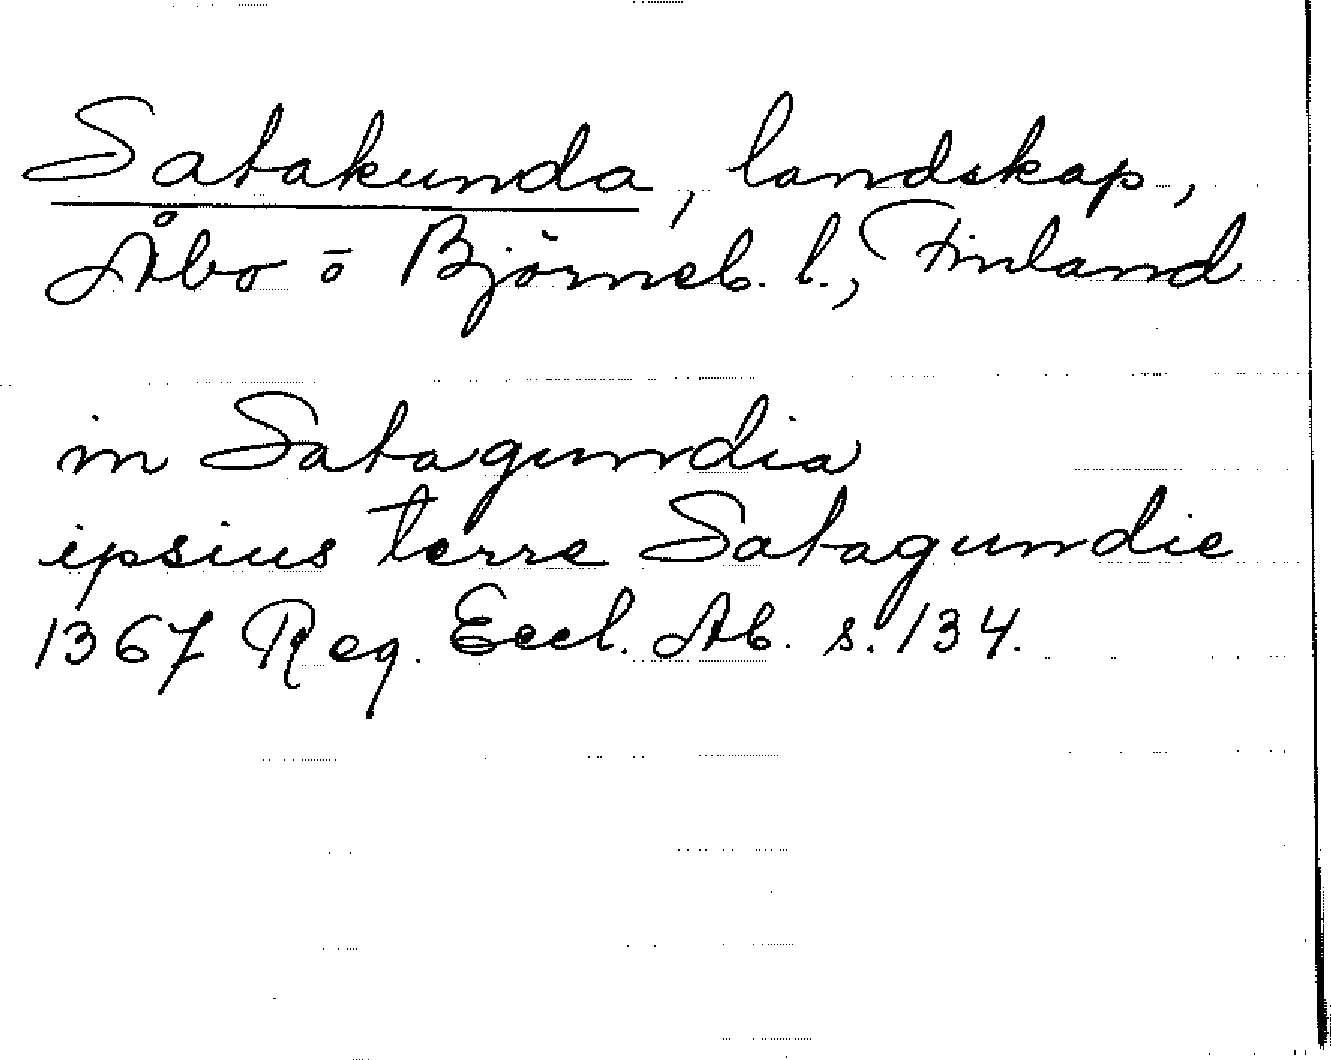 Satakunda, landskap,
Åbo ō Björneb. l., Finland
in Satagundia
ipsius terre Satagundie
1367 Reg. Eccl. Ab. s. 134.